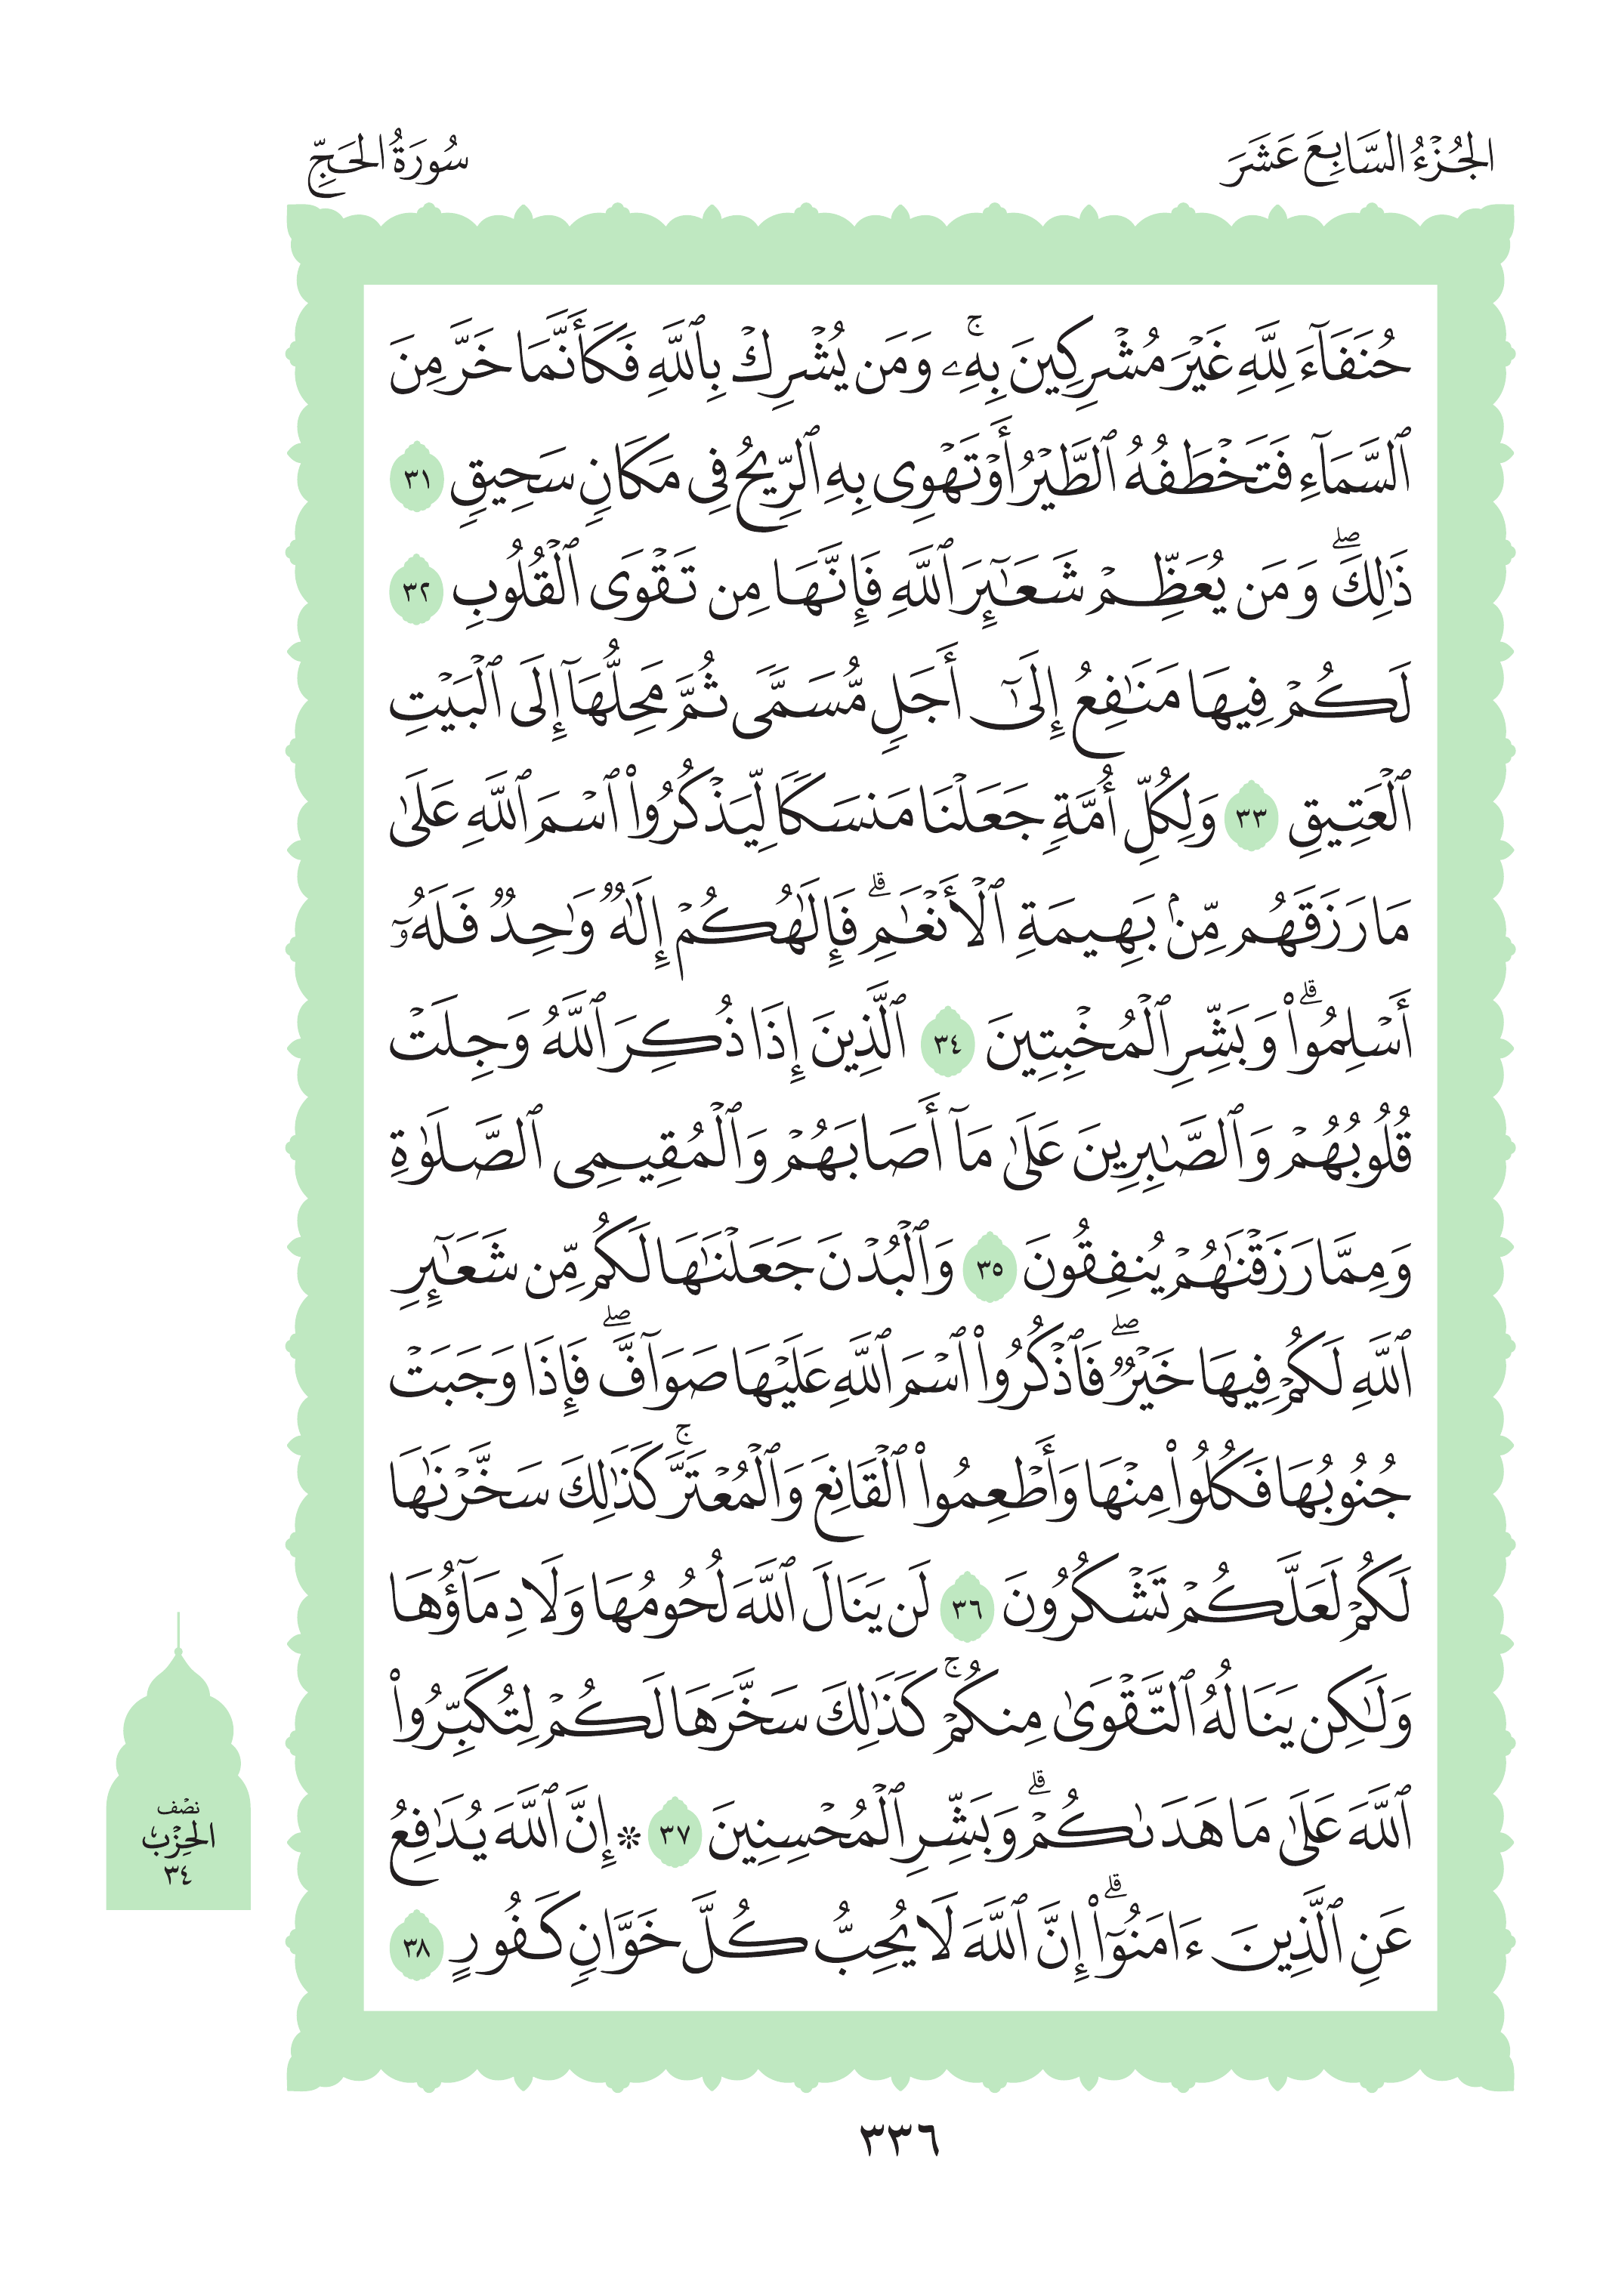 الجُزْءُ السَّابِعَ عَشَرَ
سُورَةُ الحَجِّ
حُنَفَآءَ لِلَّهِ غَيْرَ مُشْرِكِينَ بِهِۦۚ وَمَن يُشْرِكْ بِٱللَّهِ فَكَأَنَّمَا خَرَّ مِنَ
ٱلسَّمَآءِ فَتَخْطَفُهُ ٱلطَّيْرُ أَوْ تَهْوِى بِهِ ٱلرِّيحُ فِى مَكَانٍ سَحِيقٍ ٣١
ذَٰلِكَۖ وَمَن يُعَظِّمْ شَعَـٰٓئِرَ ٱللَّهِ فَإِنَّهَا مِن تَقْوَى ٱلْقُلُوبِ ٣٢
لَكُمْ فِيهَا مَنَـٰفِعُ إِلَىٰٓ أَجَلٍ مُّسَمًّى ثُمَّ مَحِلُّهَآ إِلَى ٱلْبَيْتِ
ٱلْعَتِيقِ ٣٣ وَلِكُلِّ أُمَّةٍ جَعَلْنَا مَنسَكًا لِّيَذْكُرُوا۟ ٱسْمَ ٱللَّهِ عَلَىٰ
مَا رَزَقَهُم مِّنۢ بَهِيمَةِ ٱلْأَنْعَـٰمِۗ فَإِلَـٰهُكُمْ إِلَـٰهٌ وَٰحِدٌ فَلَهُۥٓ
أَسْلِمُوا۟ۗ وَبَشِّرِ ٱلْمُخْبِتِينَ ٣٤ ٱلَّذِينَ إِذَا ذُكِرَ ٱللَّهُ وَجِلَتْ
قُلُوبُهُمْ وَٱلصَّـٰبِرِينَ عَلَىٰ مَآ أَصَابَهُمْ وَٱلْمُقِيمِى ٱلصَّلَوٰةِ
وَمِمَّا رَزَقْنَـٰهُمْ يُنفِقُونَ ٣٥ وَٱلْبُدْنَ جَعَلْنَـٰهَا لَكُم مِّن شَعَـٰٓئِرِ
ٱللَّهِ لَكُمْ فِيهَا خَيْرٌۖ فَٱذْكُرُوا۟ ٱسْمَ ٱللَّهِ عَلَيْهَا صَوَآفَّۖ فَإِذَا وَجَبَتْ
جُنُوبُهَا فَكُلُوا۟ مِنْهَا وَأَطْعِمُوا۟ ٱلْقَانِعَ وَٱلْمُعْتَرَّۚ كَذَٰلِكَ سَخَّرْنَـٰهَا
لَكُمْ لَعَلَّكُمْ تَشْكُرُونَ ٣٦ لَن يَنَالَ ٱللَّهَ لُحُومُهَا وَلَا دِمَآؤُهَا
وَلَـٰكِن يَنَالُهُ ٱلتَّقْوَىٰ مِنكُمْۚ كَذَٰلِكَ سَخَّرَهَا لَكُمْ لِتُكَبِّرُوا۟
ٱللَّهَ عَلَىٰ مَا هَدَىٰكُمْۗ وَبَشِّرِ ٱلْمُحْسِنِينَ ٣٧ ۞ إِنَّ ٱللَّهَ يُدَٰفِعُ
عَنِ ٱلَّذِينَ ءَامَنُوٓا۟ۗ إِنَّ ٱللَّهَ لَا يُحِبُّ كُلَّ خَوَّانٍ كَفُورٍ ٣٨
نصف
الحِزْب
٣٤
٣٣٦